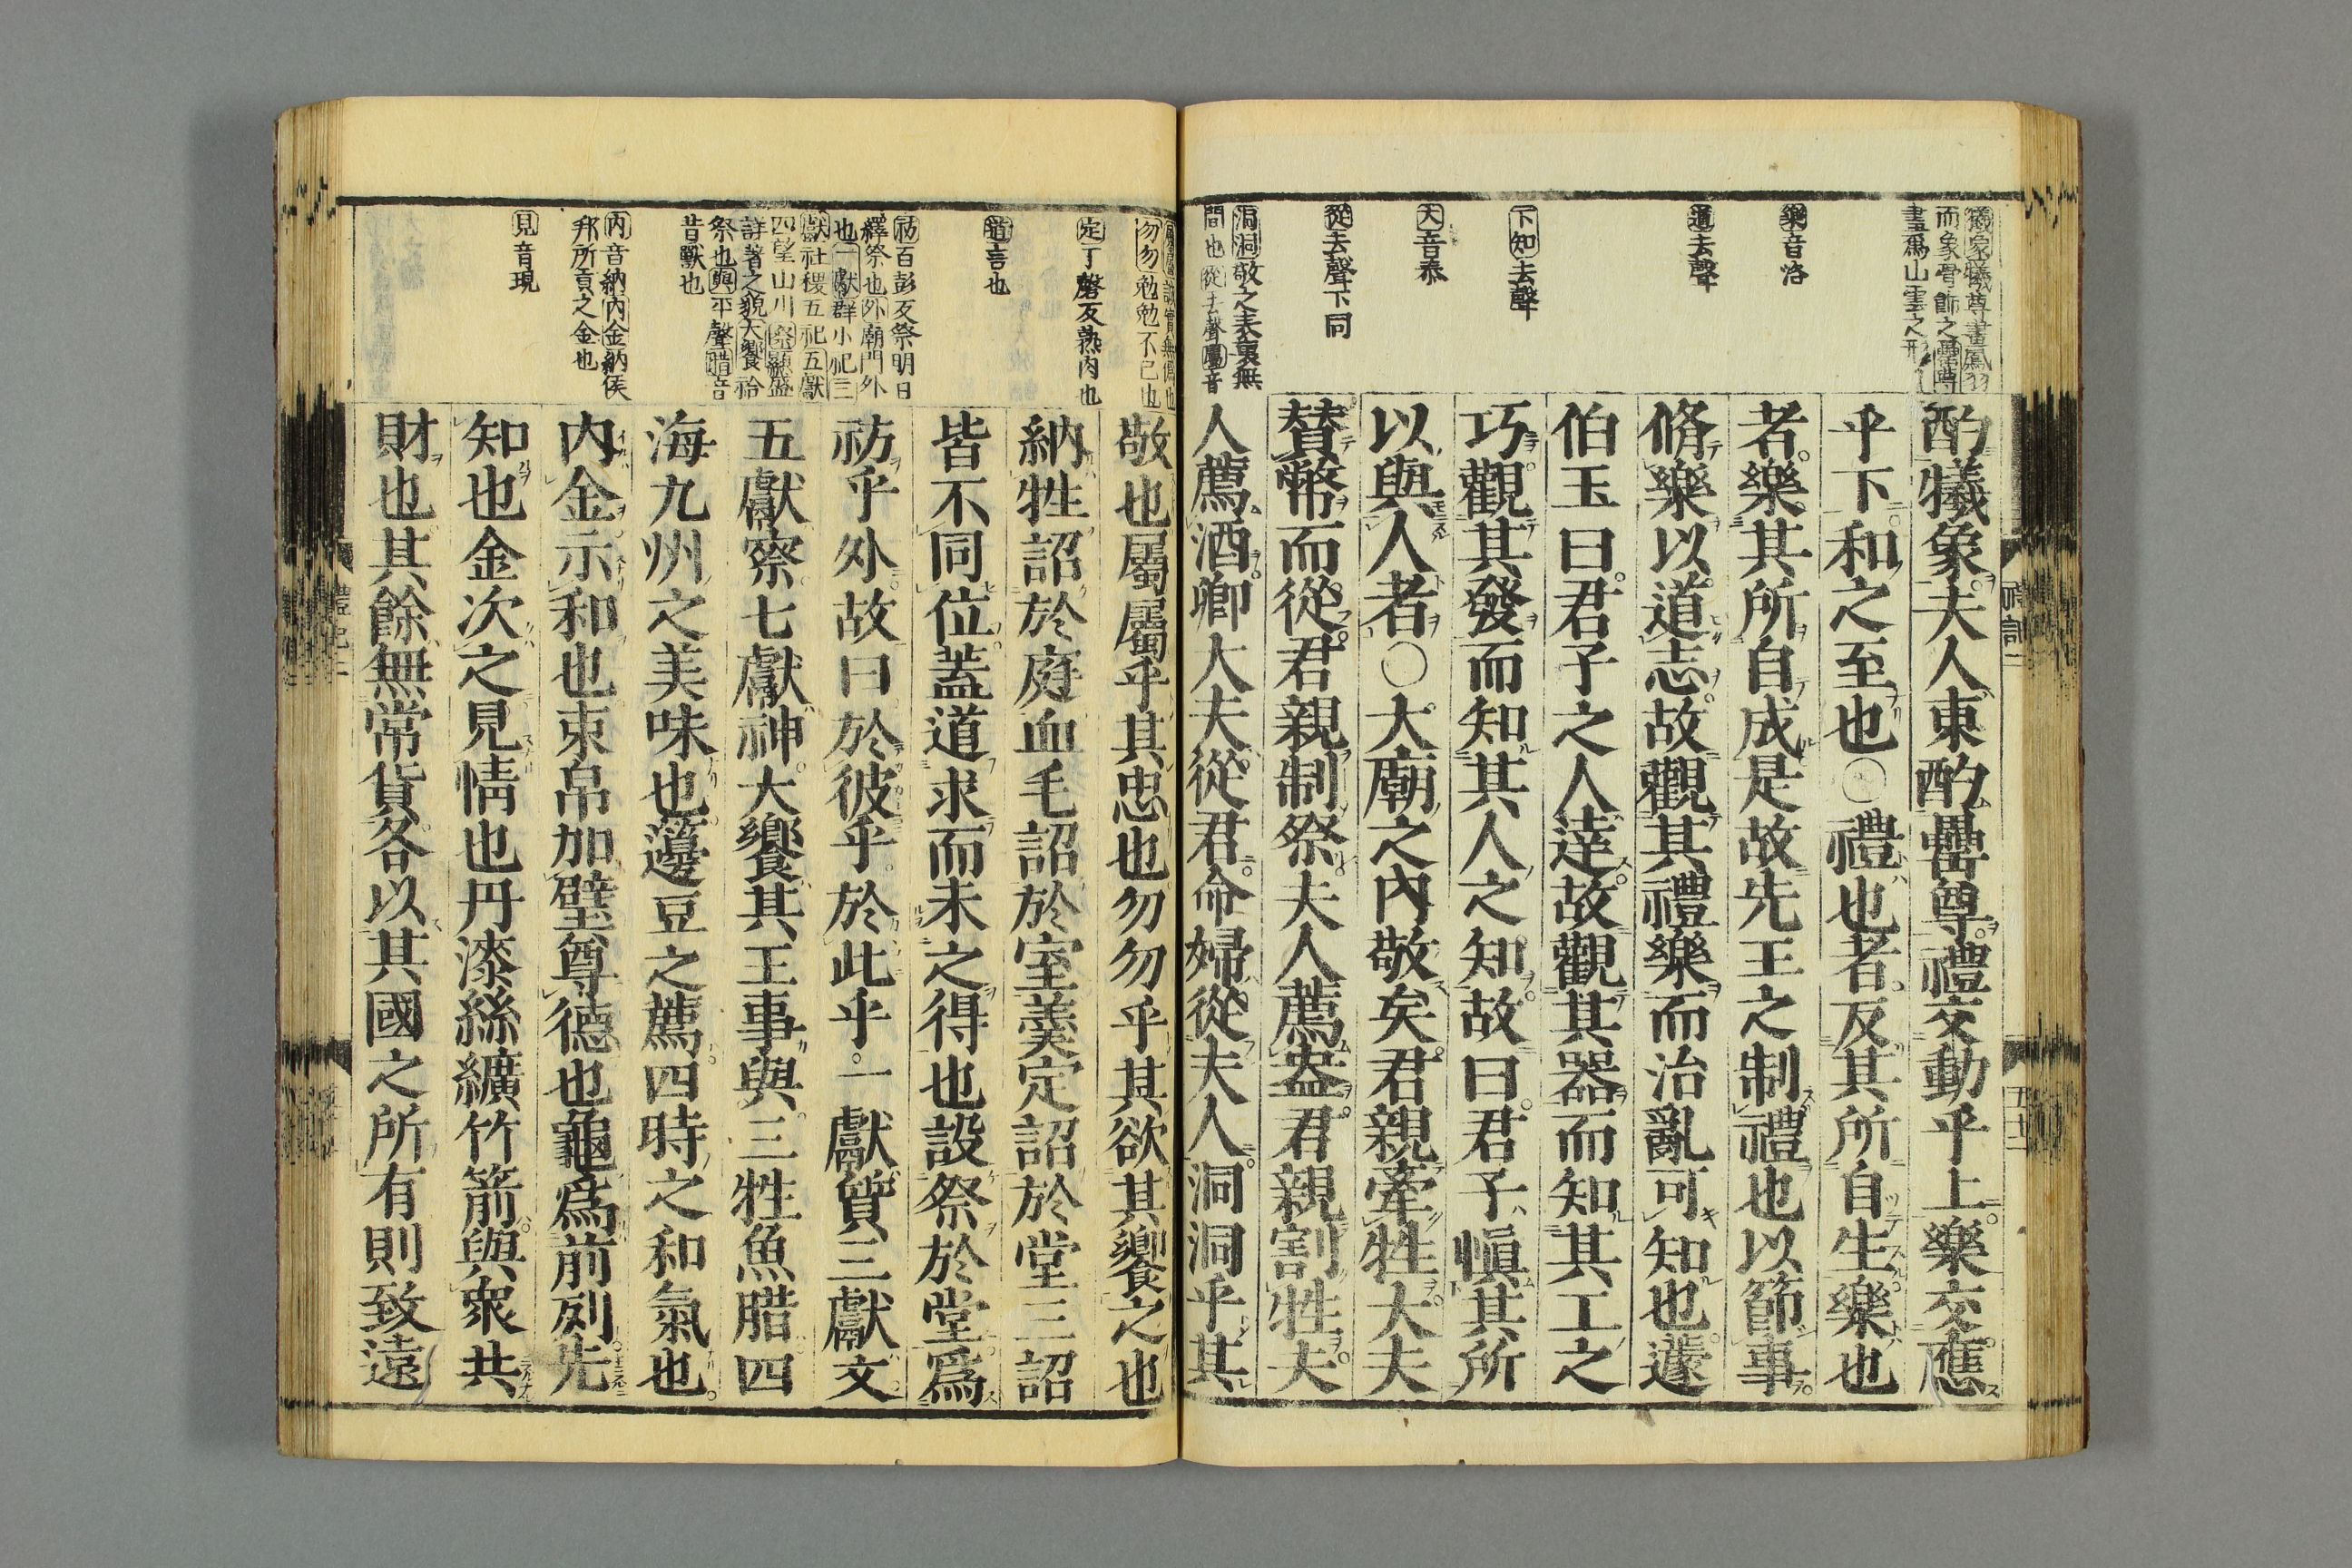 犧象犧尊畫鳳羽
而象骨飾之罍尊
畫爲山雲之形
樂音洛
道去聲
下知去聲
大音泰
從去聲下同
洞洞敬之表裏無
間也從去聲屬音
酌犧象夫人東酌罍尊禮交動乎上樂交應
乎下和之至也〇禮也者反其所自生樂也
者樂其所自成是故先王之制禮也以節事
脩樂以道志故觀其禮樂而治亂可知也蘧
伯玉曰君子之人達故觀其器而知其工之
巧觀其發而知其人之知故曰君子愼其所
以與人者〇大廟之內敬矣君親牽牲大夫
賛幣而從君親制祭夫人薦盎君親割牲夫
人薦酒卿大夫從君命婦從夫人洞洞乎其
勿勿勉勉不已也
定丁磬反熟肉也
道言也
祊百彭反祭明日
繹祭也外廟門外
也一獻群小祀三
獻社稷五祀五獻
四望山川察顯盛
詳著之貌大饗祫
祭也與平聲腊音
昔獸也
內音納內金納侯
邦所貢之金也
見音現
敬也屬屬乎其忠也勿勿乎其欲其饗之也
納牲詔於庭血毛詔於室羹定詔於堂三詔
皆不同位蓋道求而未之得也設祭於堂爲
祊乎外故曰於彼乎於此乎一獻質三獻文
五獻察七獻神大饗其王事與三牲魚腊四
海九州之美味也籩豆之薦四時之和氣也
內金示和也束帛加璧尊德也龜爲前列先
知也金次之見情也丹漆絲纊竹箭與衆共
財也其餘無常貨各以其國之所有則致遠